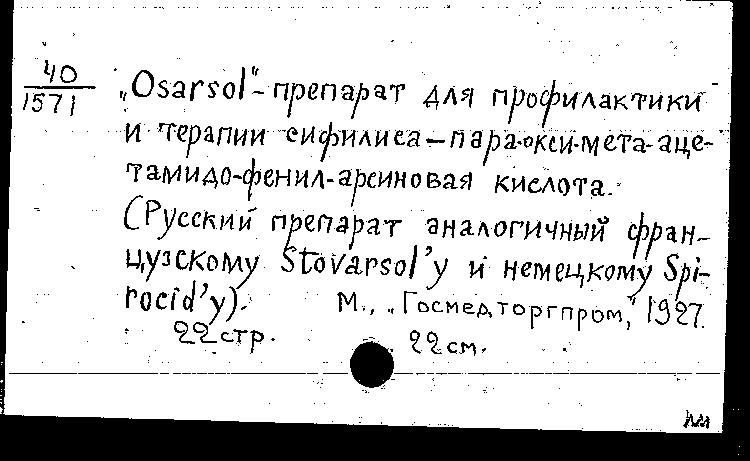 40
1571
„Osarsol“- препарат для профилактики
и терапии сифилиса – пара-окси-мета-аце-
тамидо-фенил-арсиновая кислота.
(Русский препарат аналогичный фран-
цузскому Stovarsol'у и немецкому Spi-
rocid'у).
М., „Госмедторгпром,“ 1927.
22 стр. 22 см.